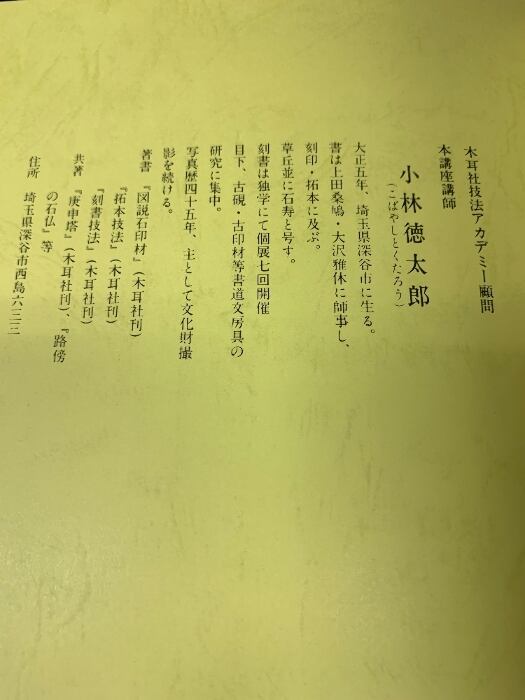 木耳社技法アカデミー顧問
本講座講師
小林徳太郎
(こばやしとくたろう)
大正五年、埼玉県深谷市に生る。
書は上田桑鳩・大沢雅休に師事し、
刻印・拓本に及ぶ。
草丘並に石寿と号す。
刻書は独学にて個展七回開催
目下、古硯・古印材等書道文房具の
研究に集中。
写真歴四十五年、主として文化財撮
影を続ける。
著書 『図説石印材』(木耳社刊)
『拓本技法』(木耳社刊)
『刻書技法』(木耳社刊)
共著 『庚申塔』(木耳社刊)、『路傍
の石仏』等
住所 埼玉県深谷市西島六三三